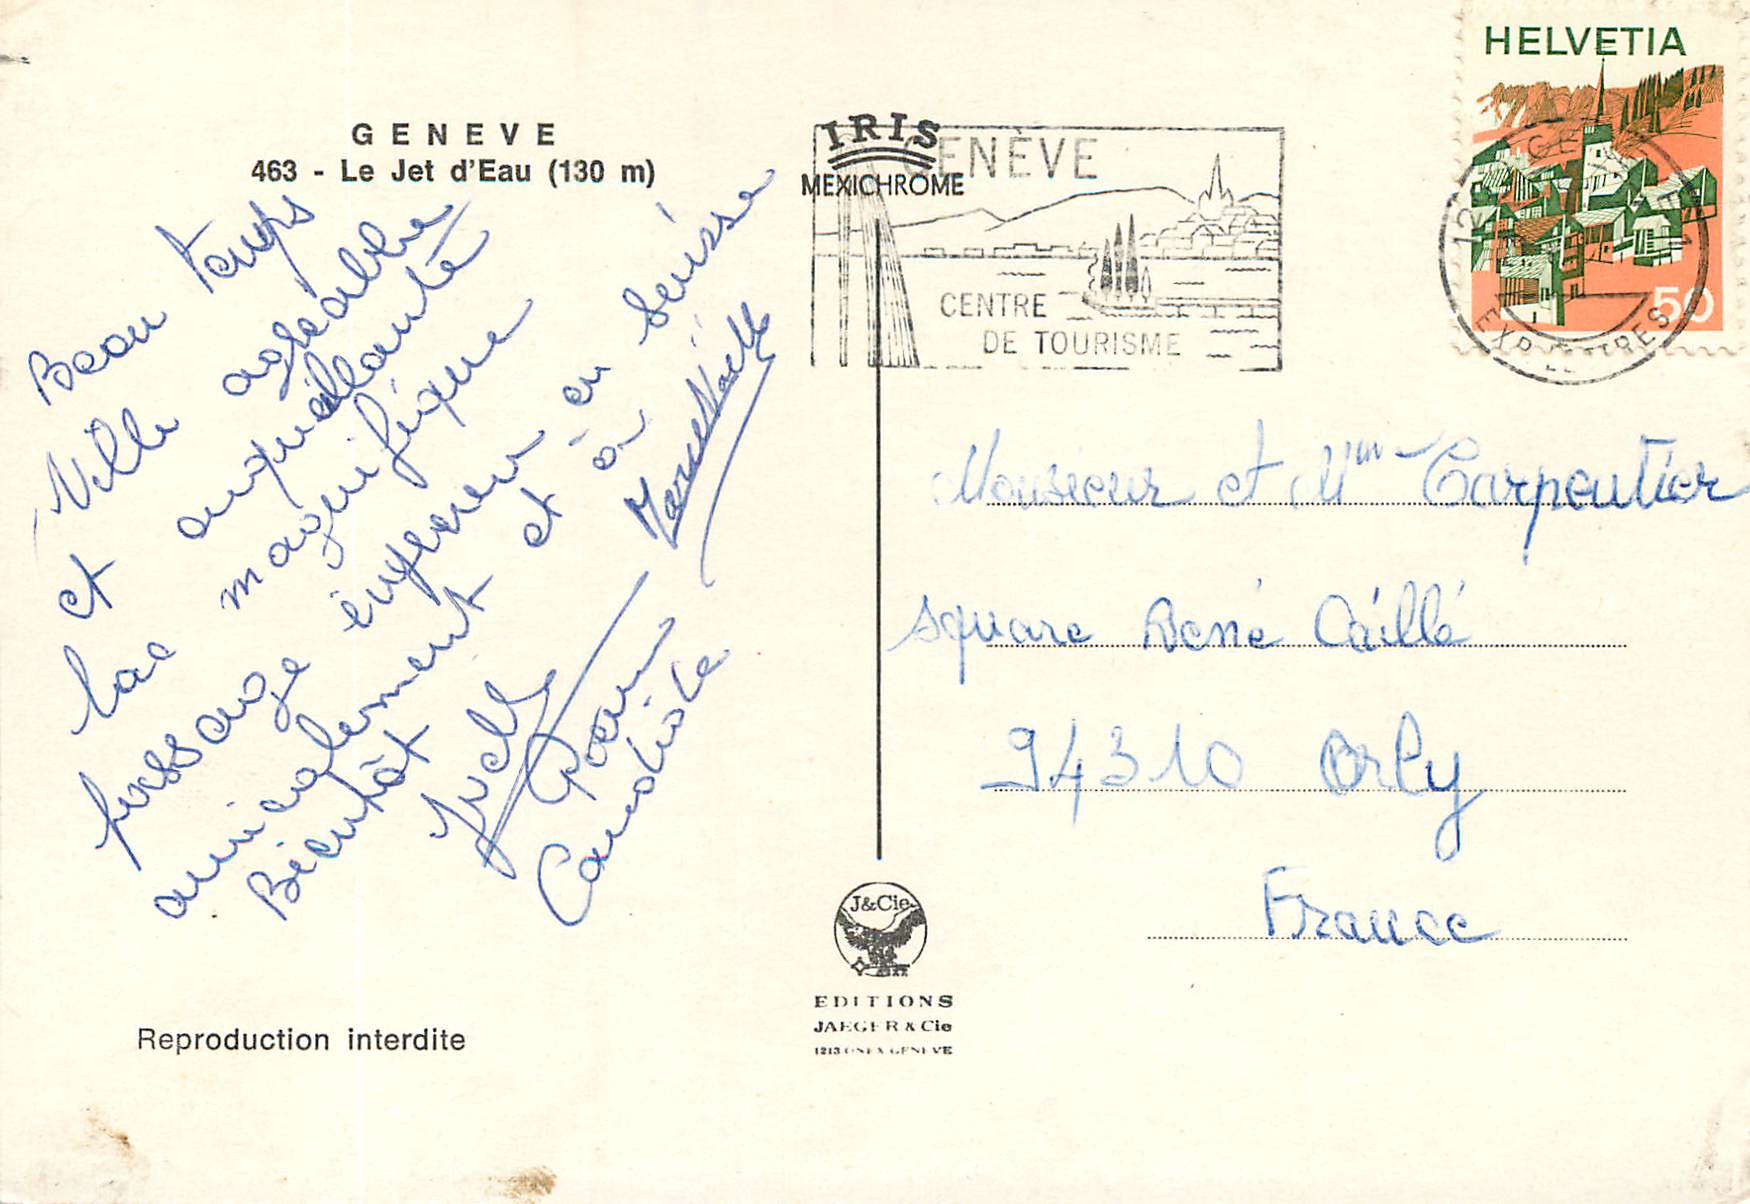 GENEVE
463 - Le Jet d'Eau (130 m)
Beau temps
Ville agréable
et
lac magnifique
passage en Suisse
amicalement et à
Bientôt
Candide
Reproduction interdite
IRIS
MEXICHROME
GENÈVE
CENTRE
DE TOURISME
J&Cie
EDITIONS
JAEGER & Cie
1213 ONEX GENEVE
HELVETIA
50
Monsieur et Mme Carpentier
square René Caillé
94310 Orly
France